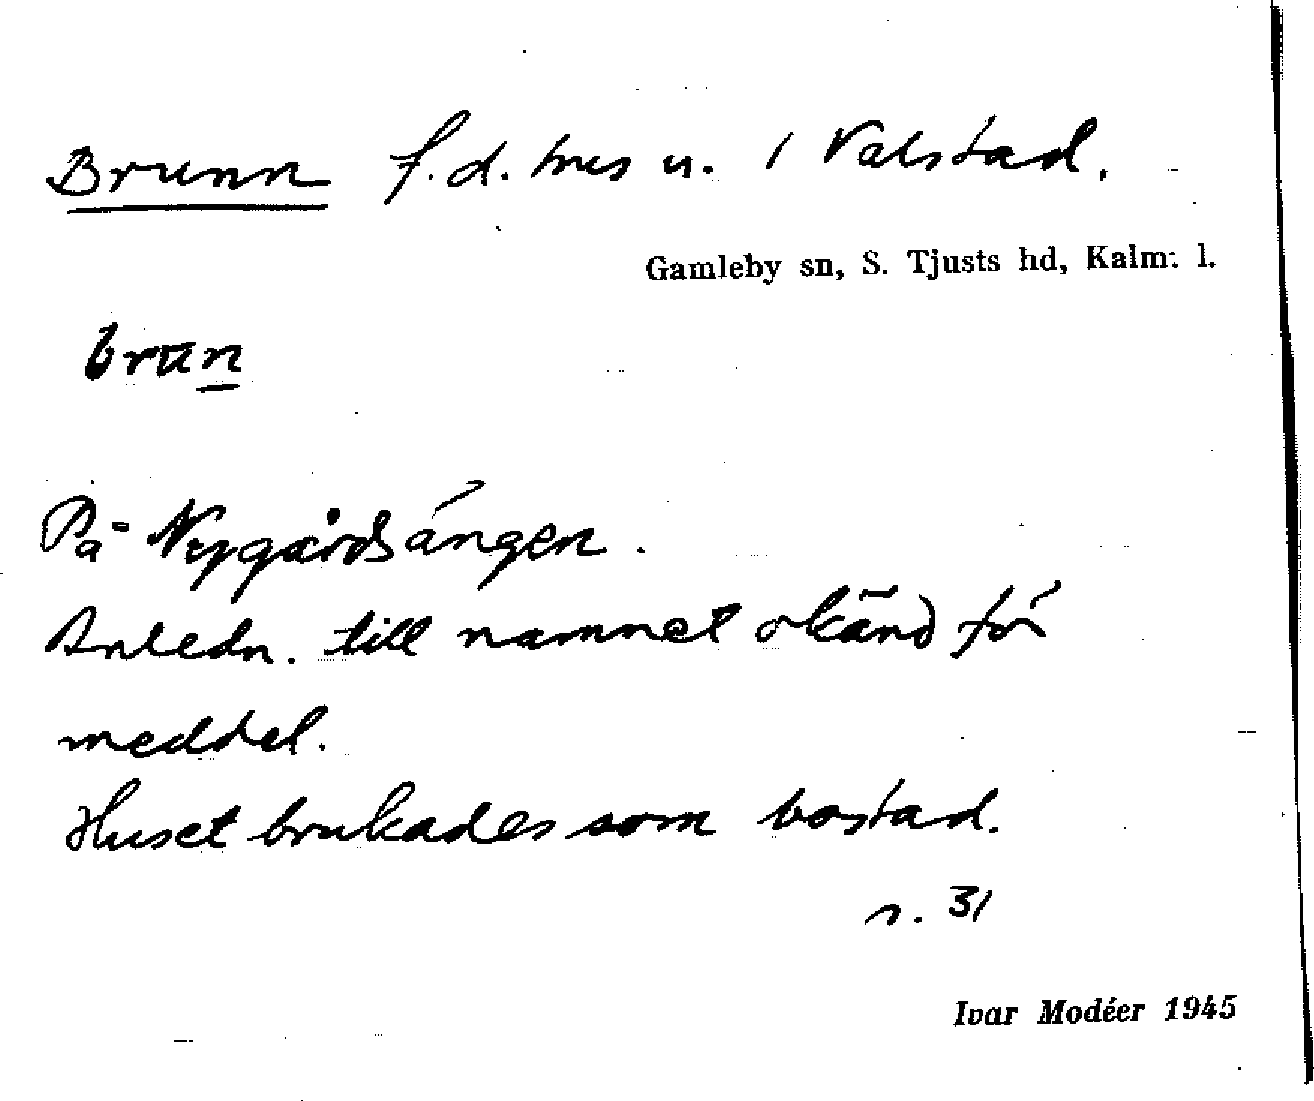 Brunn f.d. hus u. / Valstad.
Gamleby sn, S. Tjusts hd, Kalm. l.
brun
På Nygårdsängen.
Anledn. till namnet okänd för
meddel.
Huset brukades som bostad.
s. 31
Ivar Modéer 1945